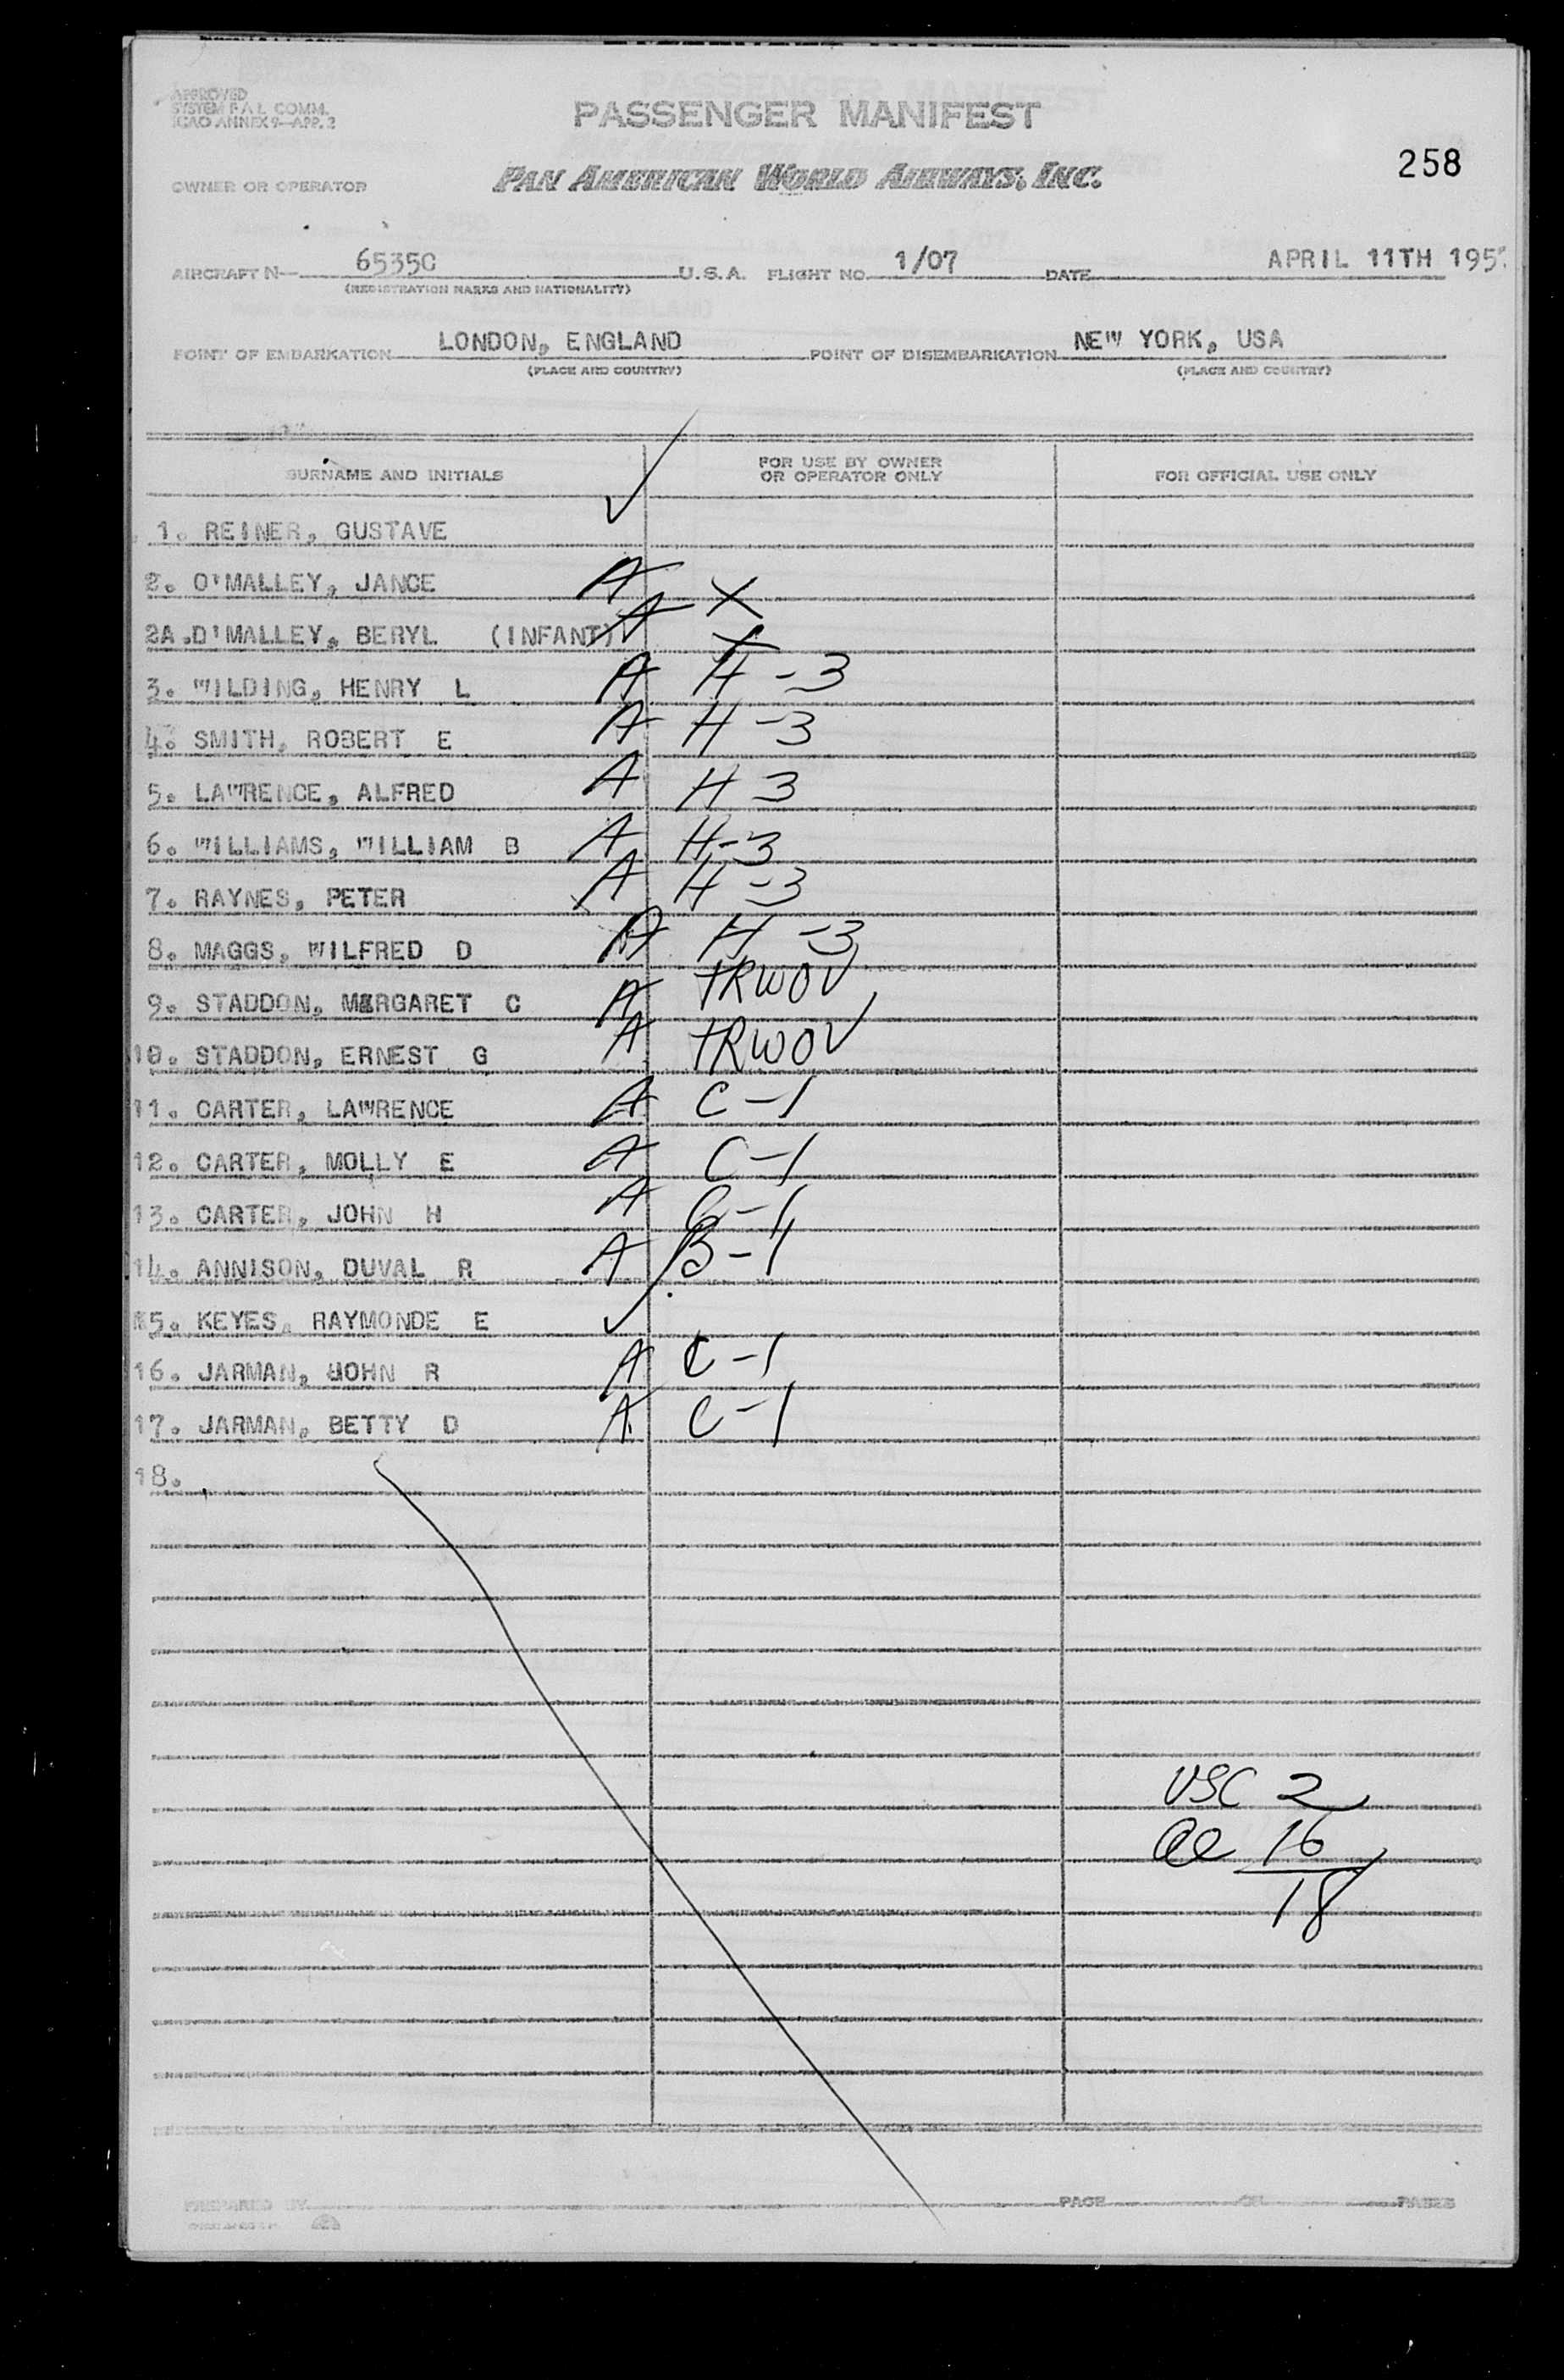 APPROVED
SYSTEM F.A.L. COMM.
ICAO ANNEX 9—APP. 2
PASSENGER MANIFEST
258
OWNER OR OPERATOR
PAN AMERICAN WORLD AIRWAYS, INC.
AIRCRAFT N— 6535C U.S.A. FLIGHT NO. 1/07 DATE APRIL 11TH
(REGISTRATION MARKS AND NATIONALITY)
POINT OF EMBARKATION LONDON, ENGLAND POINT OF DISEMBARKATION NEW YORK, USA
(PLACE AND COUNTRY) (PLACE AND COUNTRY)
SURNAME AND INITIALS FOR USE BY OWNER OR OPERATOR ONLY FOR OFFICIAL USE ONLY
1. REINER, GUSTAVE ✓
2. O'MALLEY, JANCE A X
2A.O'MALLEY, BERYL (INFANT) A X
3. WILDING, HENRY L A H-3
4. SMITH, ROBERT E A H-3
5. LAWRENCE, ALFRED A H 3
6. WILLIAMS, WILLIAM B A H-3
7. RAYNES, PETER A H-3
8. MAGGS, WILFRED D A H-3
9. STADDON, MARGARET C A TRWOV
10. STADDON, ERNEST G A TRWOV
11. CARTER, LAWRENCE A C-1
12. CARTER, MOLLY E A C-1
13. CARTER, JOHN H A C-1
14. ANNISON, DUVAL R A B-1
15. KEYES, RAYMONDE E ✓
16. JARMAN, JOHN R A C-1
17. JARMAN, BETTY D A C-1
18.
USC 2
16
18
PREPARED BY PAGE OF PAGES